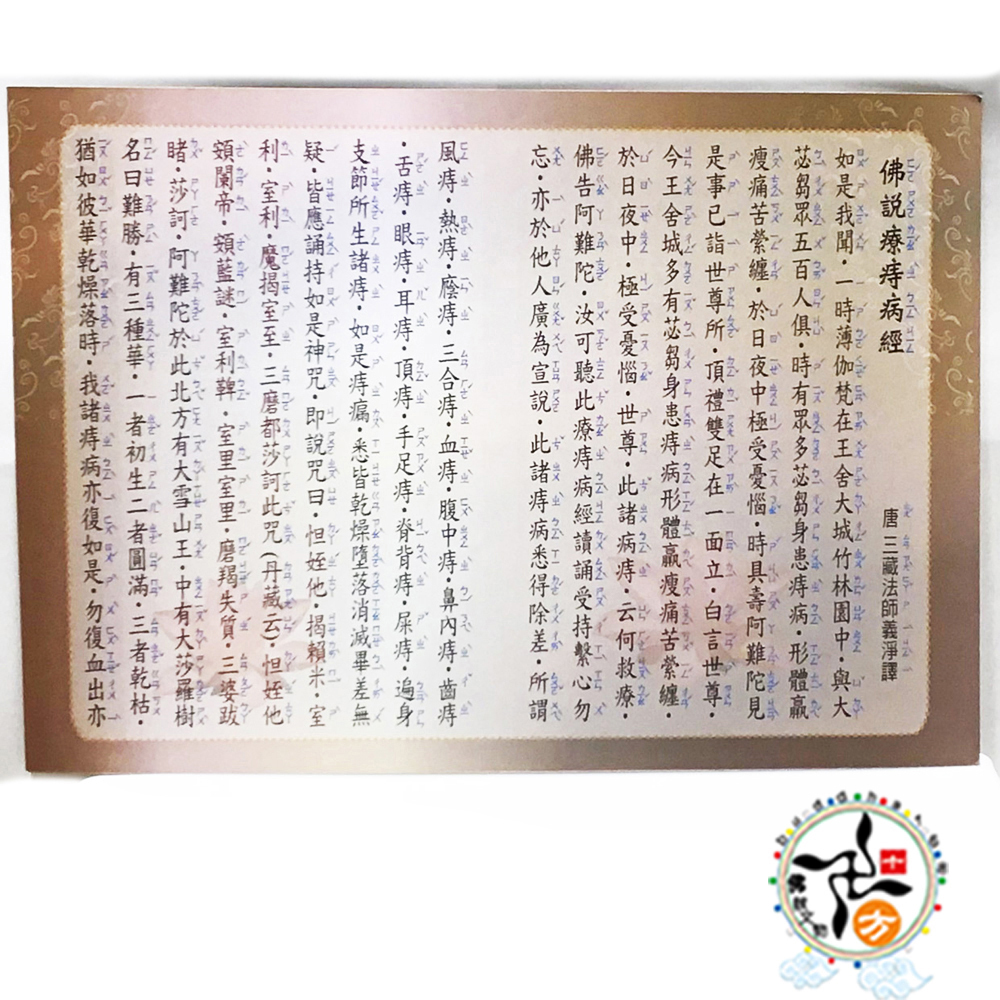 佛說療痔病經
唐三藏法師義淨譯
如是我聞・一時薄伽梵在王舍大城竹林園中・與大
苾芻眾五百人俱・時有眾多苾芻身患痔病・形體羸
瘦痛苦縈纏・於日夜中極受憂惱・時具壽阿難陀見
是事已詣世尊所・頂禮雙足在一面立・白言世尊・
今王舍城多有苾芻身患痔病形體羸瘦痛苦縈纏・
於日夜中・極受憂惱・世尊・此諸病痔・云何救療・
佛告阿難陀・汝可聽此療痔病經讀誦受持繫心勿
忘・亦於他人廣為宣說・此諸痔病悉得除差・所謂
風痔・熱痔・癊痔・三合痔・血痔・腹中痔・鼻內痔・齒痔
・舌痔・眼痔・耳痔・頂痔・手足痔・脊背痔・屎痔・遍身
支節所生諸痔・如是痔瘺・悉皆乾燥墮落消滅畢差無
疑・皆應誦持如是神咒・即說咒曰・怛姪他・揭賴米・室
利・室利・魔揭室至・三磨都莎訶此咒(丹藏云)・怛姪他
頞闌帝・頞藍謎・室利鞞・室里室里・磨羯失質・三婆跋
睹・莎訶・阿難陀於此北方有大雪山王・中有大莎羅樹
名曰難勝・有三種華・一者初生二者圓滿・三者乾枯・
猶如彼華乾燥落時・我諸痔病亦復如是・勿復血出亦
十
方